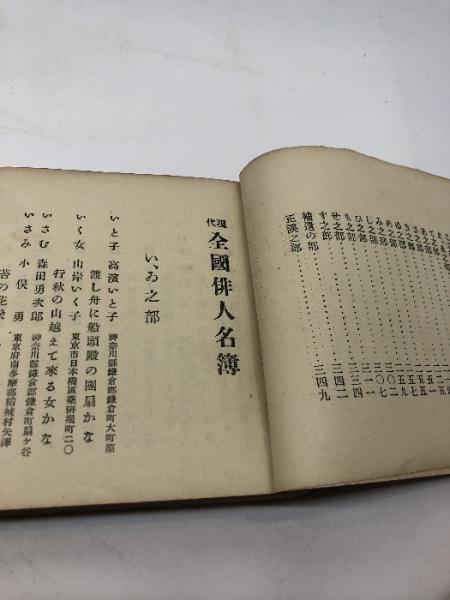 み之部
し之部
ひ之部
も之部 三一一
せ之部 三三四
す之部 三四二
補遺の部 三四九
正誤之部
現代 全國俳人名簿
い、ゐ之部
いと子 高濱いと子 神奈川縣鎌倉郡鎌倉町大町原
渡し舟に船頭殿の團扇かな
いく女 山岸いく子 東京市日本橋區藥研堀町二〇
行秋の山越えて來る女かな
いさむ 森田勇次郎 神奈川縣鎌倉郡鎌倉町扇ヶ谷
いさみ 小俣勇 東京府南多摩郡稻城村矢澤
苔の花